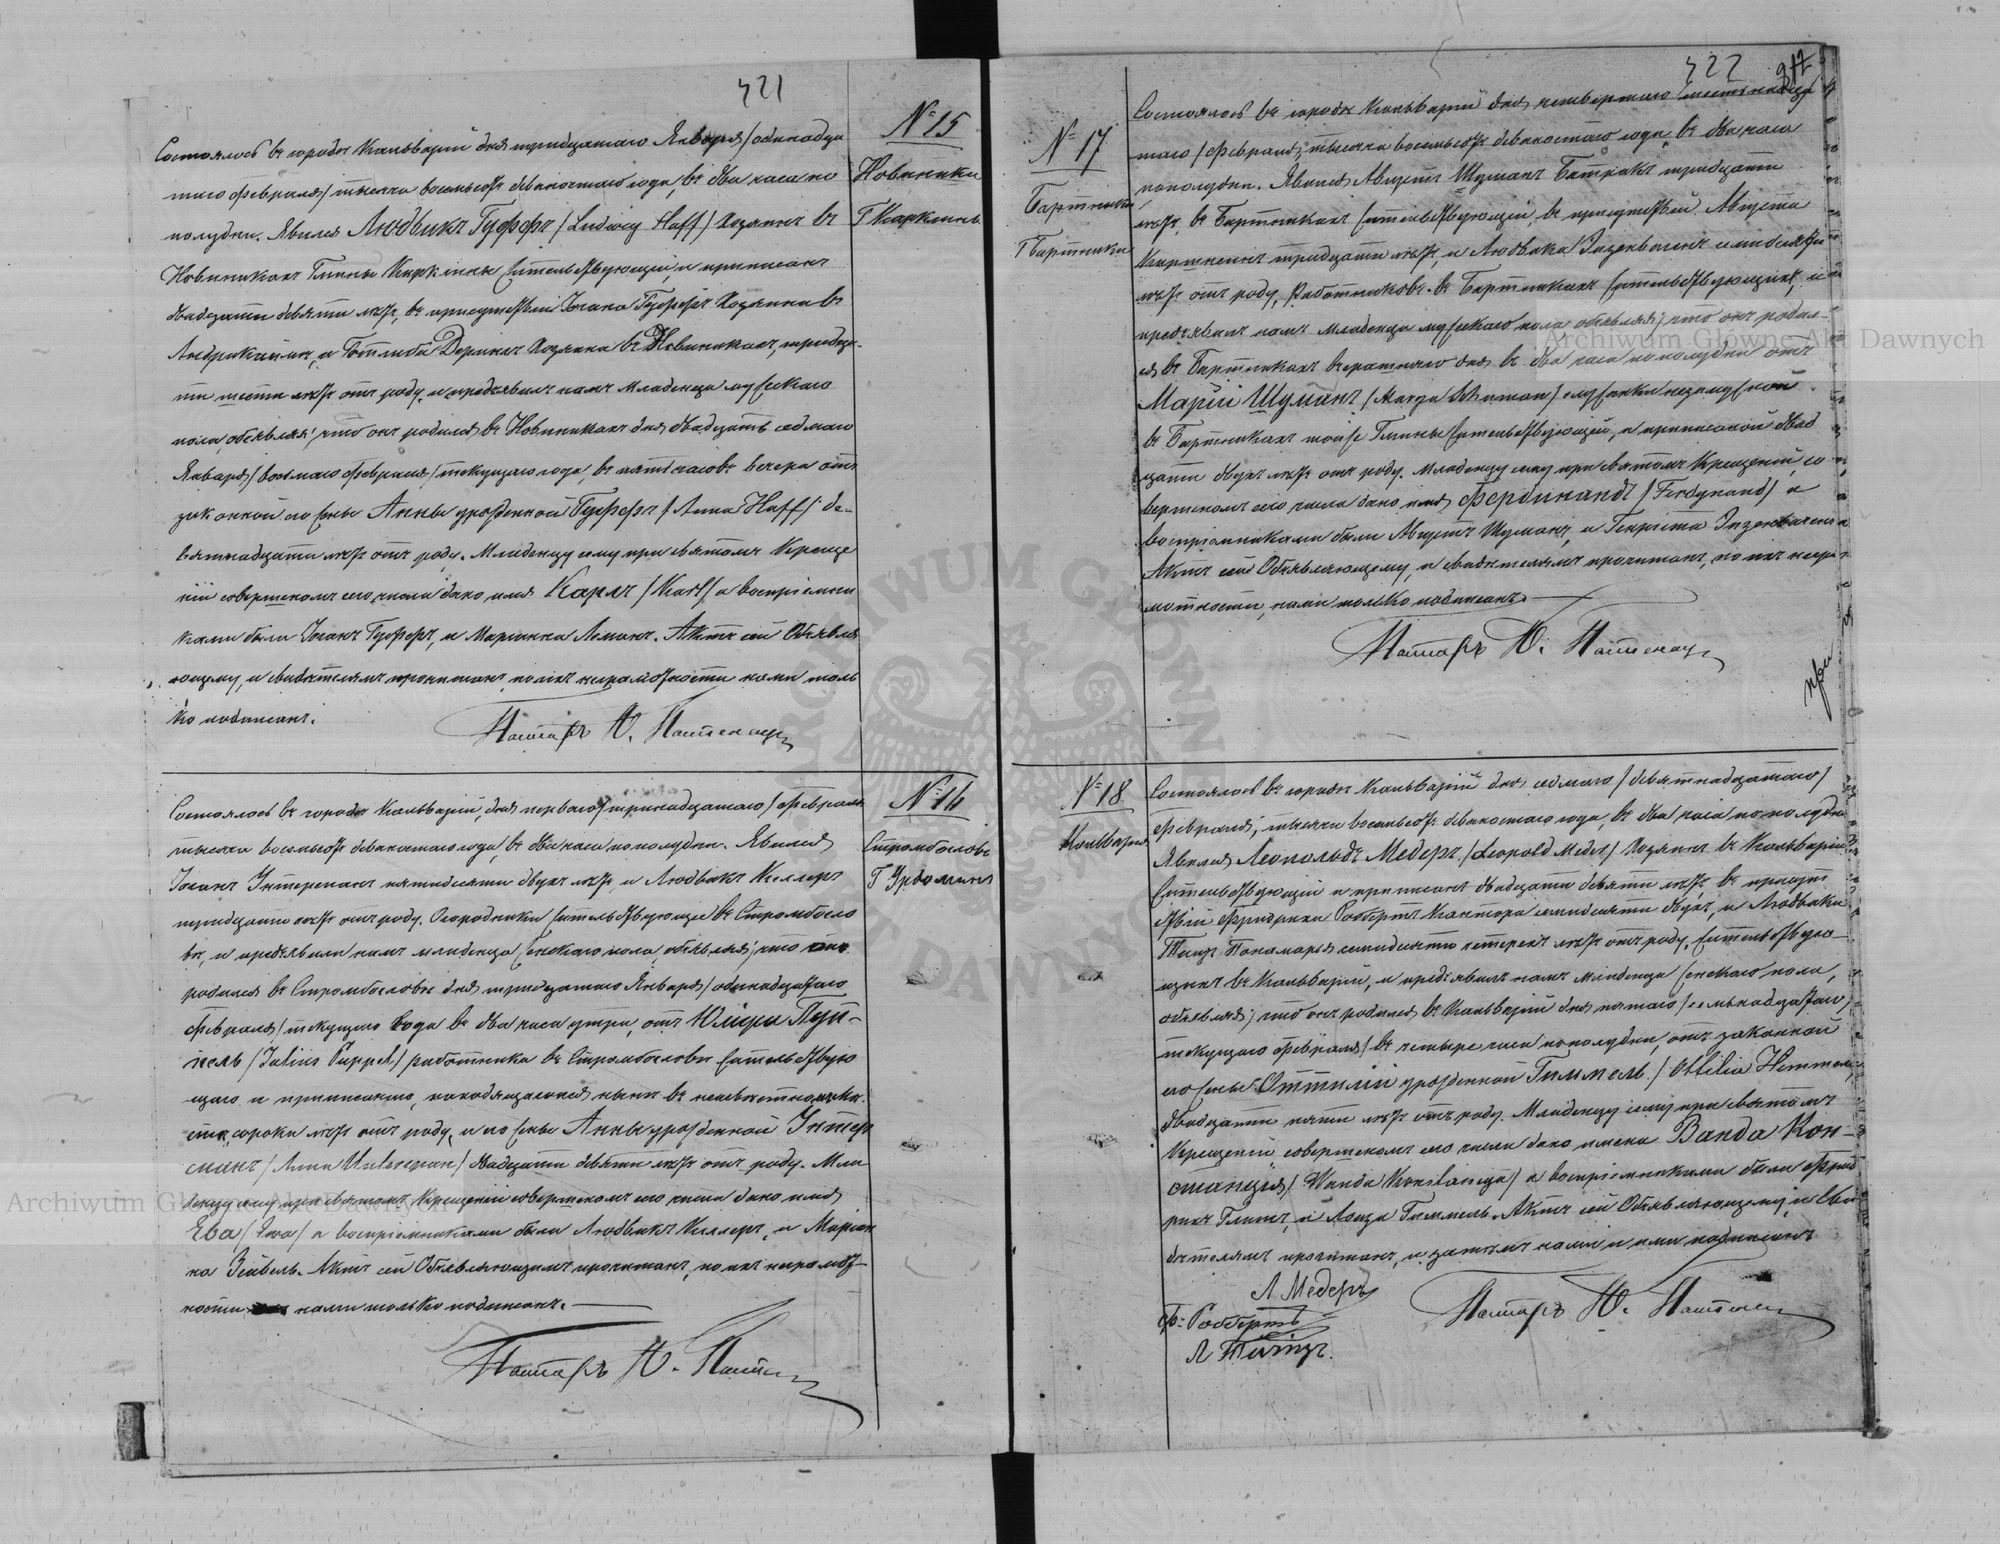 421
№ 15
Новиники
Г Кирклины
Состоялось въ городѣ Кальваріи дня тридцатаго Января/одинадца
таго Февраля/тысяча восемьсотъ девяностаго года, въ два часа по
полудни. Явился Людвикъ Гуффъ /Ludwig Huff/ Хозяинъ въ
Новиникахъ Гмины Киркляны жительствующій, и приписанъ
двадцати девяти лѣтъ, въ присутствіи Іогана Гуффъ Хозяина въ
и Готлиба Дерингъ Хозяина въ Новиникахъ, тридца-
ти шести лѣтъ отъ роду, и предъявилъ намъ младенца мужескаго
пола, объявляя; что онъ родился въ Новиникахъ дня двадцать седмаго
Января/восьмаго Февраля/текущаго года, въ пять часовъ вечера отъ
законной его жены Анны урожденной Гуффъ /Anna Huff/ де-
вятнадцати лѣтъ отъ роду. Младенцу сему при святомъ Креще
ніи совершеномъ сего числа дано имя Карлъ /Karl/ а воспріемни
ками были Іоганъ Гуффъ, и Маріанна Леманъ. Актъ сей Объявля
ющему, и свидѣтелямъ прочитанъ по ихъ неграмотности нами толь
ко подписанъ.
Пасторъ
№ 16
Стромбоглове
Г Урдомин
Состоялось въ городѣ Кальваріи, дня перваго/тринадцатаго/Февраля
тысяча восемьсотъ девяностаго года, въ два часа пополудни. Явился
Іоганъ Унтерманъ пятидесяти двухъ лѣтъ, и Людвикъ Келлеръ
тридцати лѣтъ отъ роду. Огородники жительствующіе въ Стромбогло
вѣ, и предъявили намъ младенца женскаго пола, объявляя; что онъ
родился въ Стромбогловѣ дня тридцатаго Января/одинадцатаго
Февраля/текущаго года въ два часа утра, отъ Юліуша Пуп-
пель /Julius Puppel/ работника въ Стромбогловѣ жительствую
щаго и приписаннаго, находящагося нынѣ въ неизвѣстномъ мѣ
стѣ, сорока лѣтъ отъ роду, и его жены Анны урожденной Унтер
манъ /Anna Unterman/ двадцати девяти лѣтъ отъ роду. Мла
денцу сему при святомъ Крещеніи совершеномъ сего числа дано имя
Ева /Ewa/ а воспріемниками были Людвикъ Келлеръ, и Маріан
на Зейбель. Актъ сей Объявляющимъ прочитанъ, по ихъ неграмот-
ности нами только подписанъ.
Пасторъ
422
№ 17
Бартники
Г Бартники
Состоялось въ городѣ Кальваріи дня четвертаго /шестнадца
таго/Февраля, тысяча восемьсотъ девяностаго года, въ два часа
пополудни. Явился Августъ Шуманъ Батракъ тридцати
лѣтъ, въ Бартникахъ жительствующій, въ присутствіи Августа
тридцати лѣтъ, и Людвика
лѣтъ отъ роду, Работниковъ въ Бартникахъ жительствующихъ, и
предъявилъ намъ младенца мужескаго пола объявляя; что онъ родил-
ся въ Бартникахъ вчерашняго дня въ два часа пополудни отъ
Маріи Шуманъ /Marya Schuman/ служанки незамужной
въ Бартникахъ тойже Гмины жительствующей, и приписаной двад
цати двухъ лѣтъ отъ роду. Младенцу сему при святомъ Крещеніи со
вершеномъ сего числа дано имя Фердинандъ /Ferdynand/ а
воспріемниками были Августъ Шуманъ, и Генріета
Актъ сей Объявляющему, и свидѣтелямъ прочитанъ, по ихъ негра
мотности, нами только подписанъ.
Пасторъ
№ 18
Кальварія
Состоялось въ городѣ Кальваріи дня седмаго/девятнадцатаго/
Февраля, тысяча восемьсотъ девяностаго года, въ два часа пополудни
Явился Леопольдъ Медеръ /Leopold Meder/ Хозяинъ въ Кальваріи
жительствующій и приписанъ двадцати девяти лѣтъ въ присут
ствіи Фридриха Робберта Кантора семидесяти двухъ, и Людвика
Тицъ Понамаря семидесяти четырехъ лѣтъ отъ роду, жительствую-
щихъ въ Кальваріи, и предъявилъ намъ младенца женскаго пола,
объявляя; что онъ родился въ Кальваріи дня пятаго/семнадцатаго/
текущаго Февраля въ четыре часа пополудни, отъ законной
его жены Оттиліи урожденной Гиммель /Ottilia Himmel/
двадцати пяти лѣтъ отъ роду. Младенцу сему при святомъ
Крещеніи совершеномъ сего числа дано имена Ванда Кон-
станція /Wanda Konstancya/ а воспріемниками были Фрид
рихъ и Лоиза Гиммель. Актъ сей Объявляющему, и Сви
дѣтелямъ прочитанъ, и затѣмъ нами и ими подписанъ
Л Медеръ
Ф. Роббертъ
Л Тицъ.
Пасторъ
Archiwum Główne Akt Dawnych
Archiwum Główne Akt Dawnych
ARCHIWUM GŁÓWNE AKT DAWNYCH